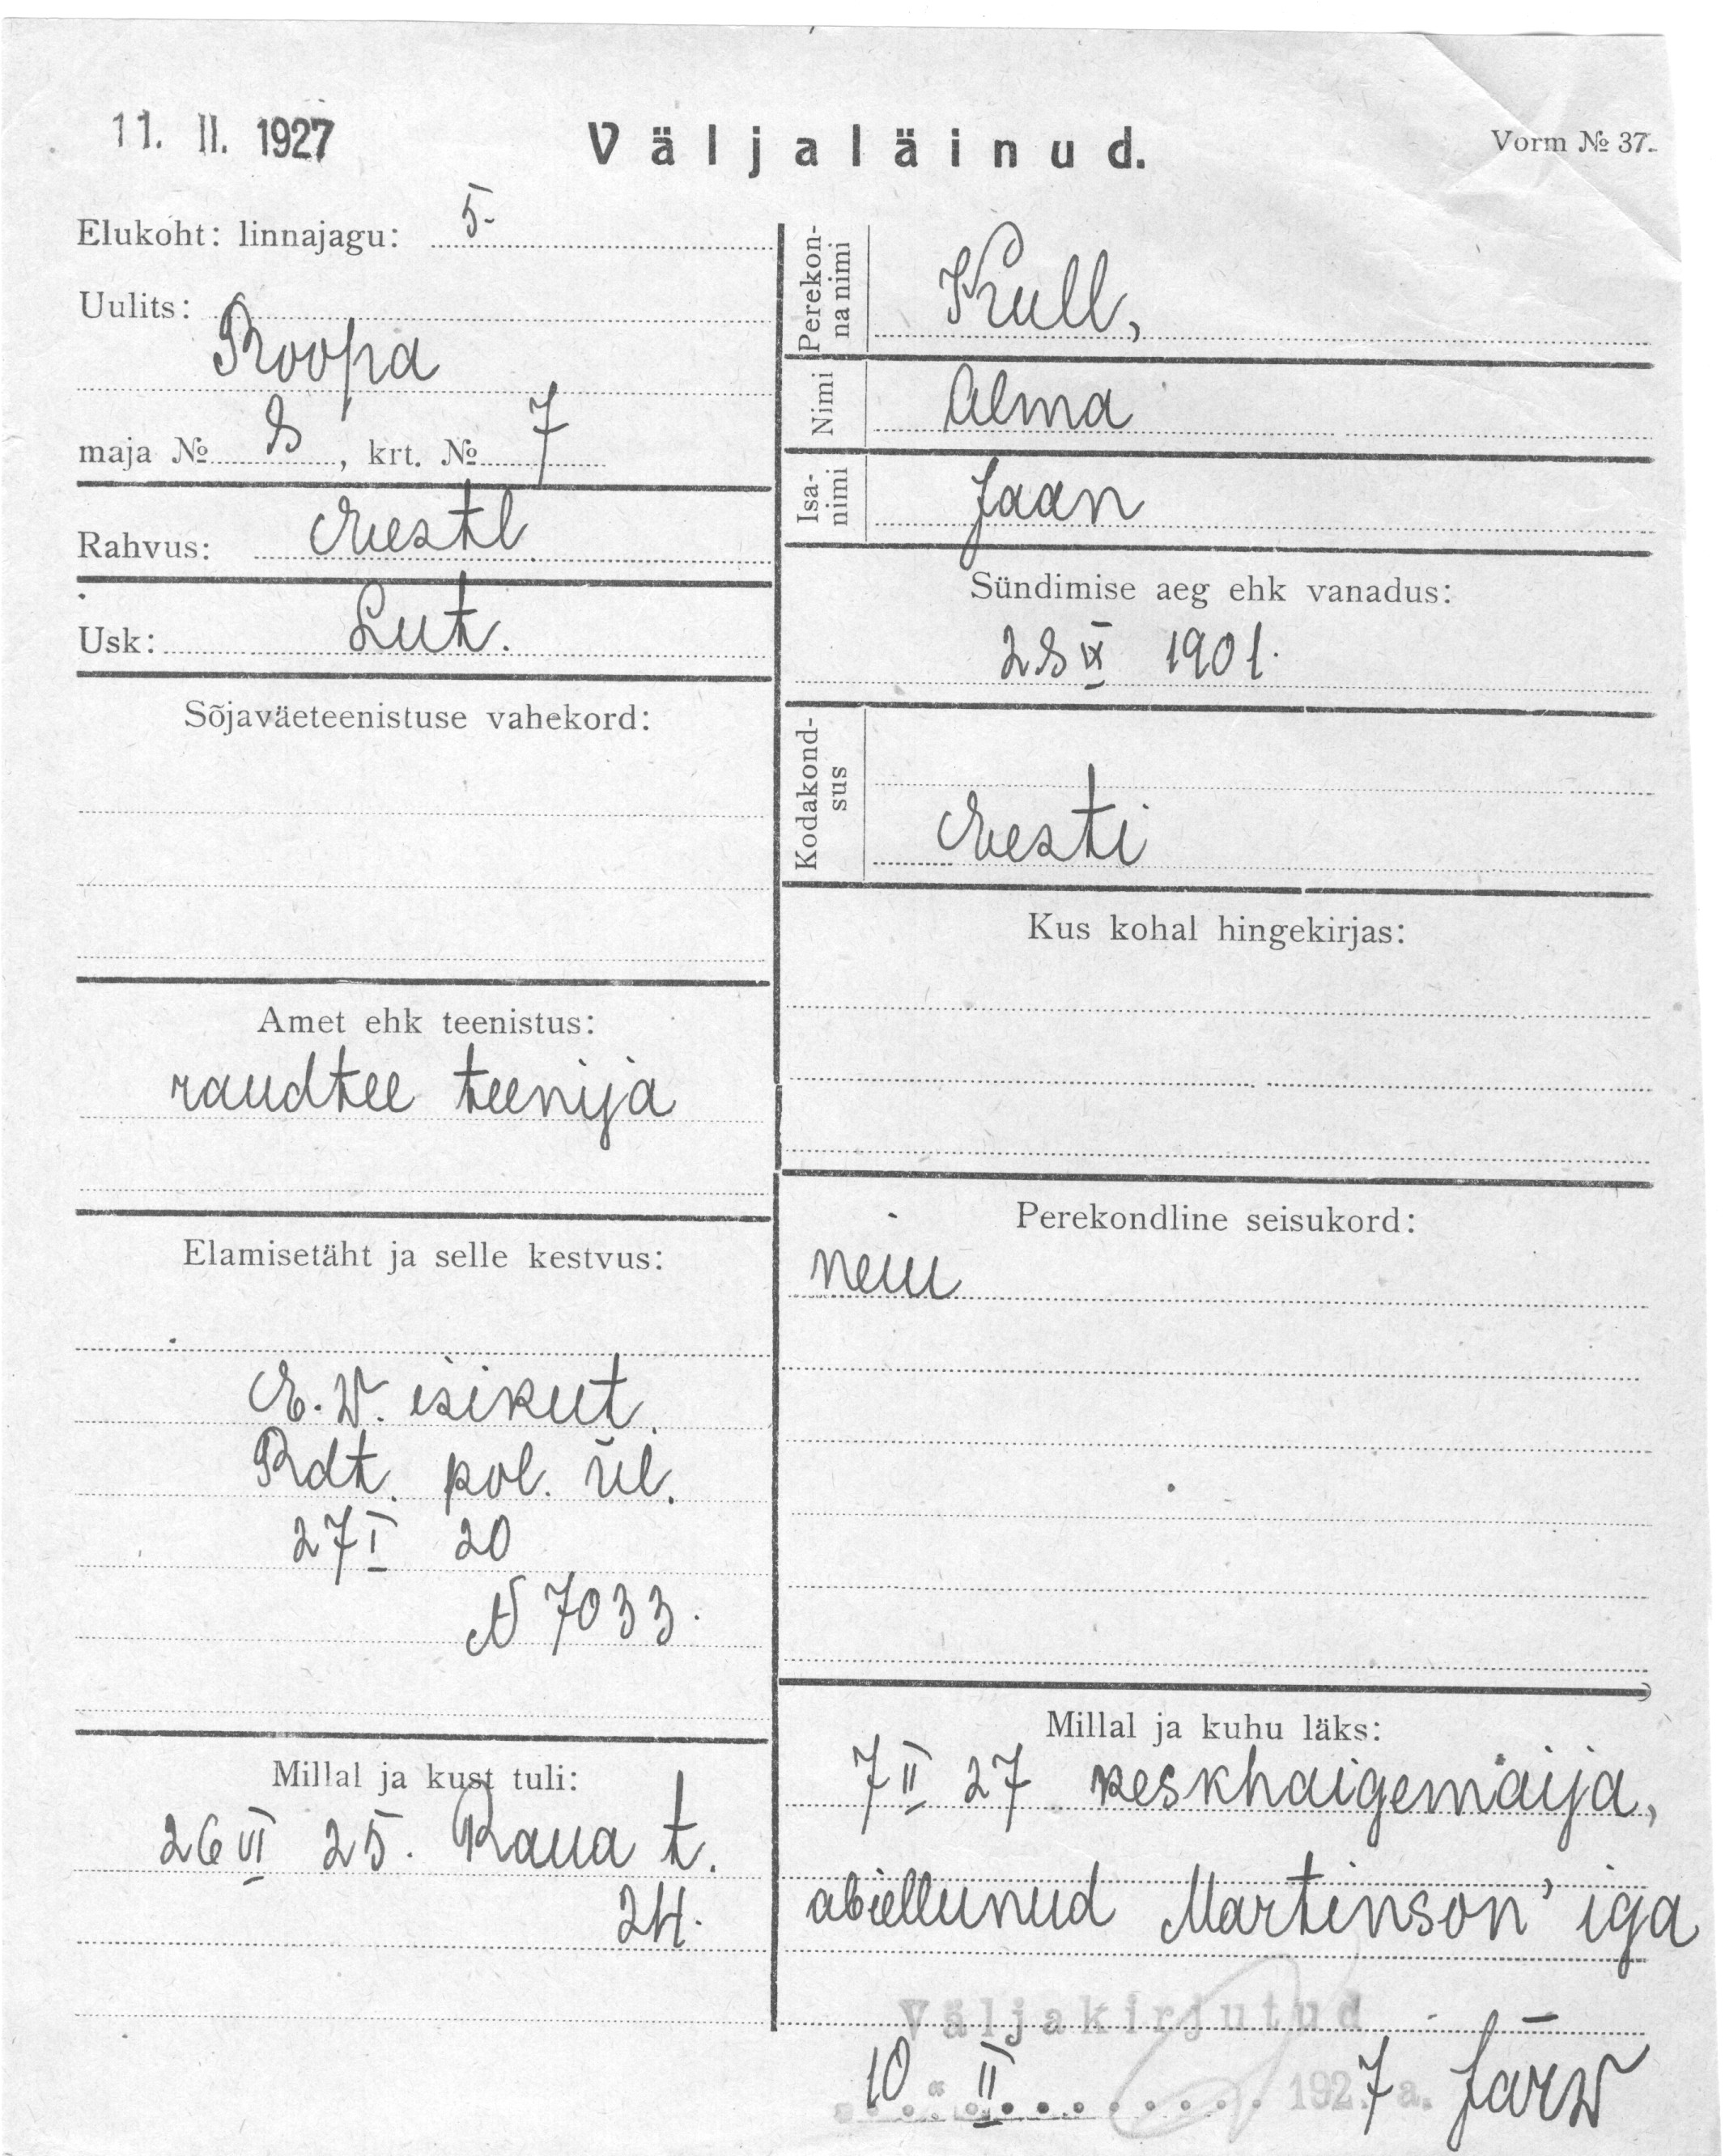 11. II. 1927
Väljaläinud.
Vorm № 37.
Elukoht: linnajagu: 5-
Uulits:
Roopa
maja № 8, krt. № 7
Rahvus: Eestl.
Usk: Lut.
Sõjaväeteenistuse vahekord:
Amet ehk teenistus:
raudtee teenija
Elamisetäht ja selle kestvus:
E. W. isikut.
Rdt. pol. ül.
27 I 20
N 7033.
Millal ja kust tuli:
26 VI 25. Raua t.
24.
Perekon-
na nimi
Krull,
Nimi
Alma
Isa-
nimi
Jaan
Sündimise aeg ehk vanadus:
28 IX 1901.
Kodakond-
sus
Eesti
Kus kohal hingekirjas:
Perekondline seisukord:
neiu
Millal ja kuhu läks:
7 II 27 keskhaigemaija,
abiellunud Martinson'iga
Väljakirjutud
10 " II 1927 a. Järw